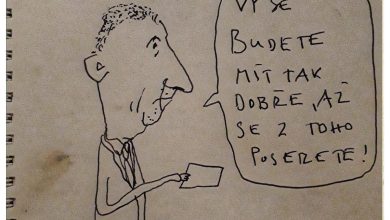 VY SE
BUDETE
MÍT TAK
DOBŘE, AŽ
SE Z TOHO
POSERETE!